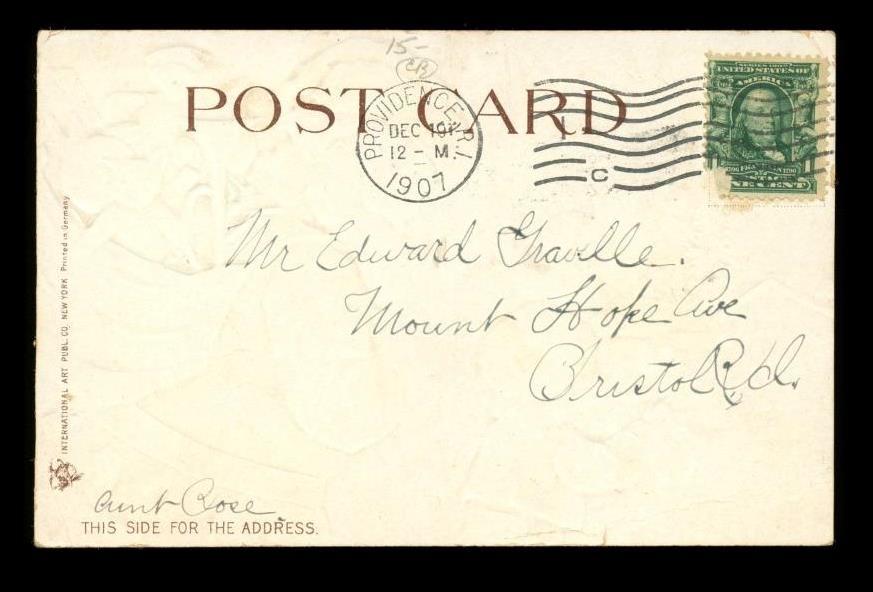 15-
CB
POST CARD
PROVIDENCE, R.I.
DEC 19
12 - M
1907
C
SERIES 1902
UNITED STATES OF
AMERICA
FRANKLIN
ONE CENT
Mr Edward
Mount Hope Ave
Bristol R.I.
INTERNATIONAL ART PUBL. CO. NEW YORK Printed in Germany
Aunt Rose
THIS SIDE FOR THE ADDRESS.